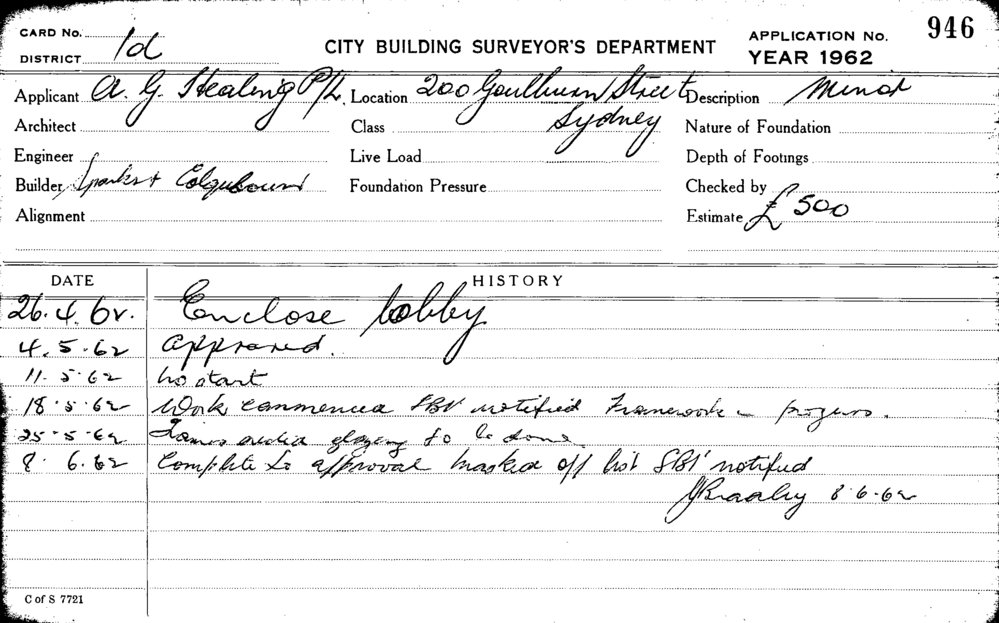 CARD No.
DISTRICT 1d
CITY BUILDING SURVEYOR'S DEPARTMENT
APPLICATION No. 946
YEAR 1962
Applicant A. G. Healing P/L. Location 200 Goulburn Street Description Minor
Architect Class Sydney Nature of Foundation
Engineer Live Load Depth of Footings
Builder Sparks + Colquhoun Foundation Pressure Checked by
Alignment Estimate £ 500
DATE HISTORY
26.4.62. Enclose lobby
4.5.62 Approved.
11.5.62 No start
18.5.62 Work commenced SBI notified Framework in progress.
25-5-62 glazing to be done
8.6.62 Complete to approval marked off list SBI notified
8.6.62
C of S 7721